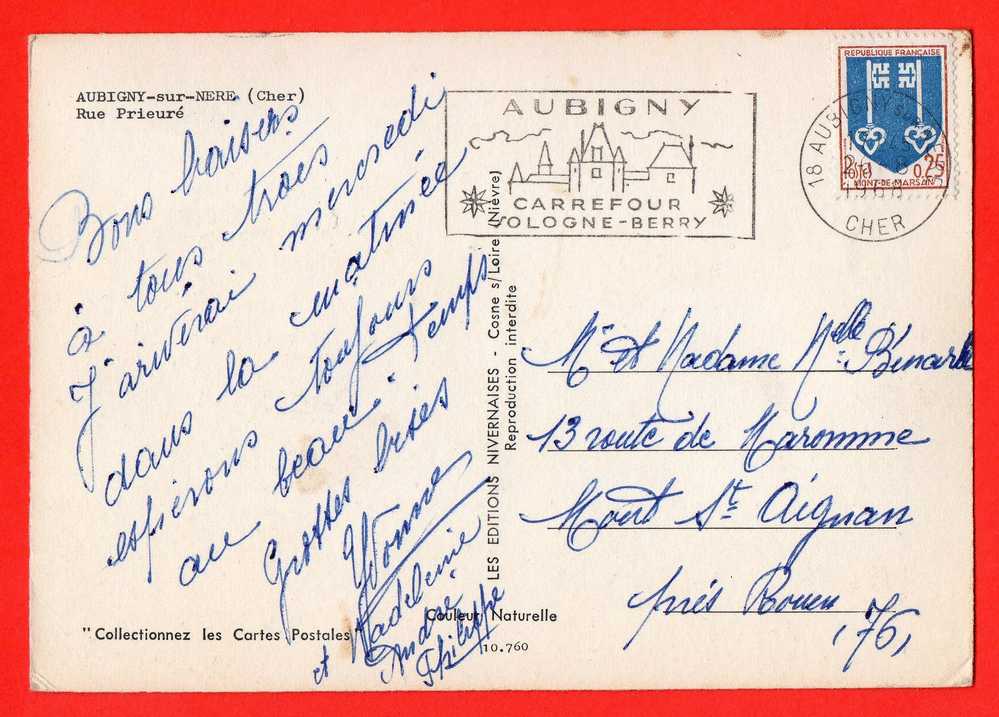 AUBIGNY-sur-NERE (Cher)
Rue Prieuré
Bons baisers
à tous trois
J'arriverai mercredi
dans la matinée
espérons toujours
au beau temps
Grosses bises
Yvonne
et Madeleine
André
Philippe
"Collectionnez les Cartes Postales"
LES EDITIONS NIVERNAISES - Cosne s/Loire (Nièvre)
Reproduction interdite
Couleur Naturelle
10.760
AUBIGNY
CARREFOUR
SOLOGNE-BERRY
18 AUBIGNY
1968
CHER
REPUBLIQUE FRANÇAISE
Postes 0,25
MONT-DE-MARSAN
Mr et Madame Melle Bénard
13 route de Maromme
Mont St Aignan
près Rouen
(76)